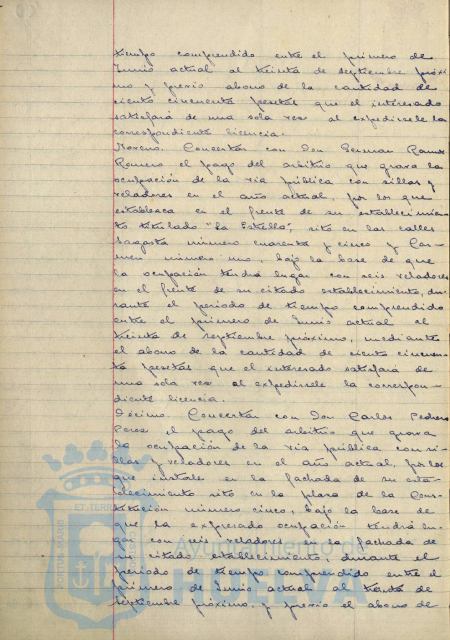 tiempo comprendido entre el primero de
Junio actual al treinta de septiembre próxi
mo y previo abono de la cantidad de
ciento cincuenta pesetas que el interesado
satisfará de una sola vez al expedirsele la
correspondiente licencia.
Noveno. Concertar con Don German Ramos
Romero el pago del arbitrio que grava la
ocupación de la via pública con sillas y
veladores en el año actual, por los que
establezca en el frente de su establecimien
to titulado "La Estrella", sito en las calles
Sagasta número cuarenta y cinco y Car-
men número uno, bajo la base de que
la ocupación tendrá lugar con seis veladores
en el frente de su citado establecimiento, du-
rante el periodo de tiempo comprendido
entre el primero de Junio actual al
treinta de septiembre próximo, mediante
el abono de la cantidad de ciento cincuen
ta pesetas que el interesado satisfará de
una sola vez al expedirsele la correspon-
diente licencia.
Décimo. Concertar con Don Carlos Pedrero
Perez el pago del arbitrio que grava
la ocupación de la via pública con si-
llas y veladores en el año actual, por los
que instale en la fachada de su esta-
blecimiento sito en la plaza de la Cons-
titución número cinco, bajo la base de
que la expresada ocupación tendrá lu-
gar con seis veladores en la fachada de
su citado establecimiento, durante el
periodo de tiempo comprendido entre el
primero de Junio actual al treinta de
septiembre próximo, y previo el abono de
HUELVA